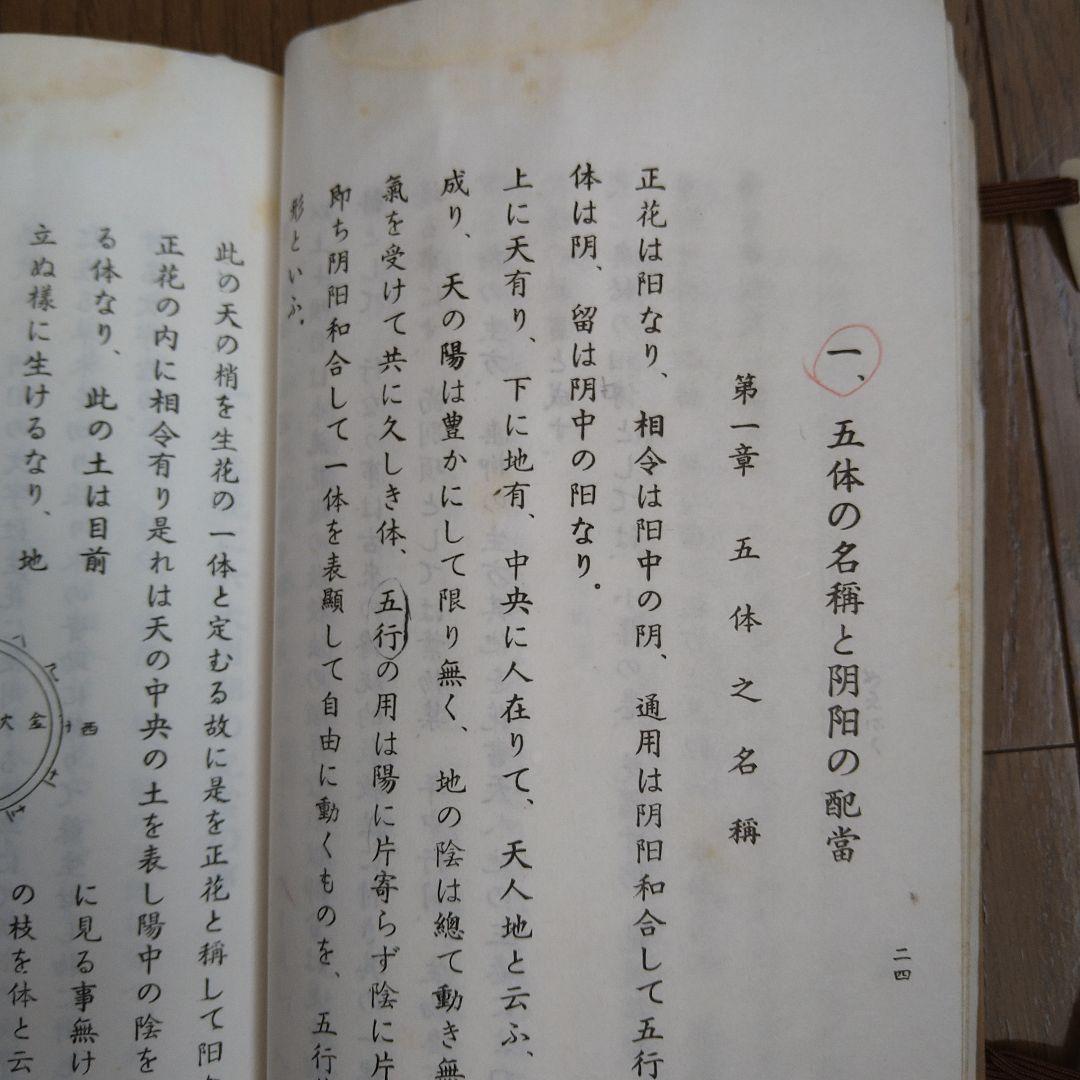 二四
一、五体の名稱と阴阳の配當
第一章　五体之名稱
正花は阳なり、相令は阳中の阴、通用は阴阳和合して五行
体は阴、留は阴中の阳なり。
上に天有り、下に地有、中央に人在りて、天人地と云ふ、
成り、天の陽は豊かにして限り無く、地の陰は總て動き無
氣を受けて共に久しき体、五行の用は陽に片寄らず陰に片
即ち阴阳和合して一体を表顯して自由に動くものを、五行
形といふ。
此の天の梢を生花の一体と定むる故に是を正花と稱して阳
正花の内に相令有り是れは天の中央の土を表し陽中の陰を
る体なり、此の土は目前
に見る事無け
立ぬ様に生けるなり、地
の枝を体と云
西
金